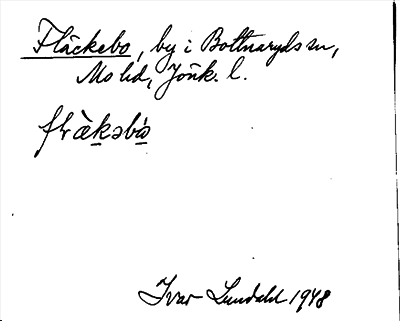 Fläckebo, by i Bottnaryds sn,
Mo hd, Jönk. l.
fläkəbo
Ivar Lundahl 1948